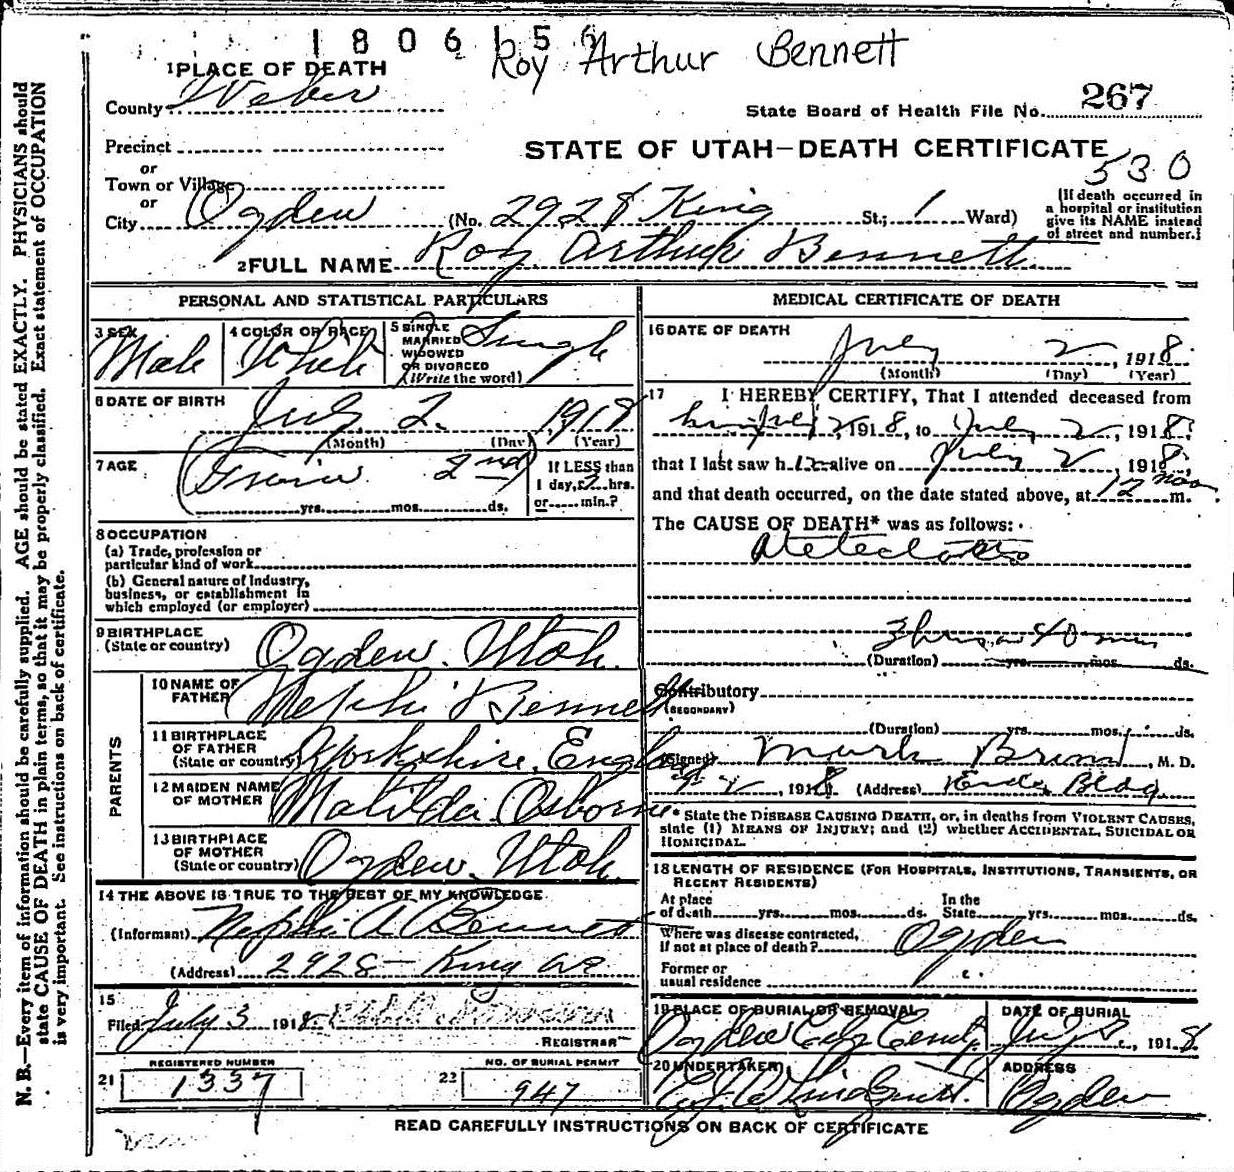 1806156
Roy Arthur Bennett
1 PLACE OF DEATH
County Weber
State Board of Health File No. 267
Precinct
STATE OF UTAH—DEATH CERTIFICATE
530
or
Town or Village
or
City Ogden (No. 2928 King St.; 1 Ward)
(If death occurred in a hospital or institution give its NAME instead of street and number.)
2 FULL NAME Roy Arthur Bennett
PERSONAL AND STATISTICAL PARTICULARS
3 SEX Male
4 COLOR OR RACE White
5 SINGLE MARRIED WIDOWED OR DIVORCED (Write the word) Single
6 DATE OF BIRTH July 2, 1918
(Month) (Day) (Year)
7 AGE Twin 2nd
yrs. mos. ds.
If LESS than
1 day, hrs.
or min.?
8 OCCUPATION
(a) Trade, profession or
particular kind of work
(b) General nature of Industry,
business, or establishment in
which employed (or employer)
9 BIRTHPLACE
(State or country) Ogden Utah.
PARENTS
10 NAME OF
FATHER Nephi Bennett
11 BIRTHPLACE
OF FATHER
(State or country) Yorkshire, England
12 MAIDEN NAME
OF MOTHER Matilda Osborne
13 BIRTHPLACE
OF MOTHER
(State or country) Ogden Utah.
14 THE ABOVE IS TRUE TO THE BEST OF MY KNOWLEDGE
(Informant) Nephi A Bennett
(Address) 2928 – King ave
15
Filed July 3 1918
REGISTRAR
REGISTERED NUMBER
21 1337
NO. OF BURIAL PERMIT
22 947
MEDICAL CERTIFICATE OF DEATH
16 DATE OF DEATH
July 2, 1918
(Month) (Day) (Year)
17 I HEREBY CERTIFY, That I attended deceased from
July 2, 1918, to July 2, 1918,
that I last saw h alive on July 2, 1918,
and that death occurred, on the date stated above, at 12 noon m.
The CAUSE OF DEATH* was as follows:
Atelectasis
3 hrs 40 min
(Duration) yrs. mos. ds.
Contributory
(SECONDARY)
(Duration) yrs. mos. ds.
(Signed) Mark Brown, M. D.
7-2, 1918 (Address) Bldg.
* State the DISEASE CAUSING DEATH, or, in deaths from VIOLENT CAUSES,
state (1) MEANS OF INJURY; and (2) whether ACCIDENTAL, SUICIDAL OR
HOMICIDAL.
18 LENGTH OF RESIDENCE (FOR HOSPITALS, INSTITUTIONS, TRANSIENTS, OR
RECENT RESIDENTS)
At place In the
of death yrs. mos. ds. State yrs. mos. ds.
Where was disease contracted,
if not at place of death? Ogden
Former or
usual residence
19 PLACE OF BURIAL OR REMOVAL
Ogden City Cemty.
DATE OF BURIAL
1918
20 UNDERTAKER
Lindquist.
ADDRESS
Ogden
READ CAREFULLY INSTRUCTIONS ON BACK OF CERTIFICATE
N. B.—Every item of information should be carefully supplied. AGE should be stated EXACTLY. PHYSICIANS should
state CAUSE OF DEATH in plain terms, so that it may be properly classified. Exact statement of OCCUPATION
is very important. See instructions on back of certificate.